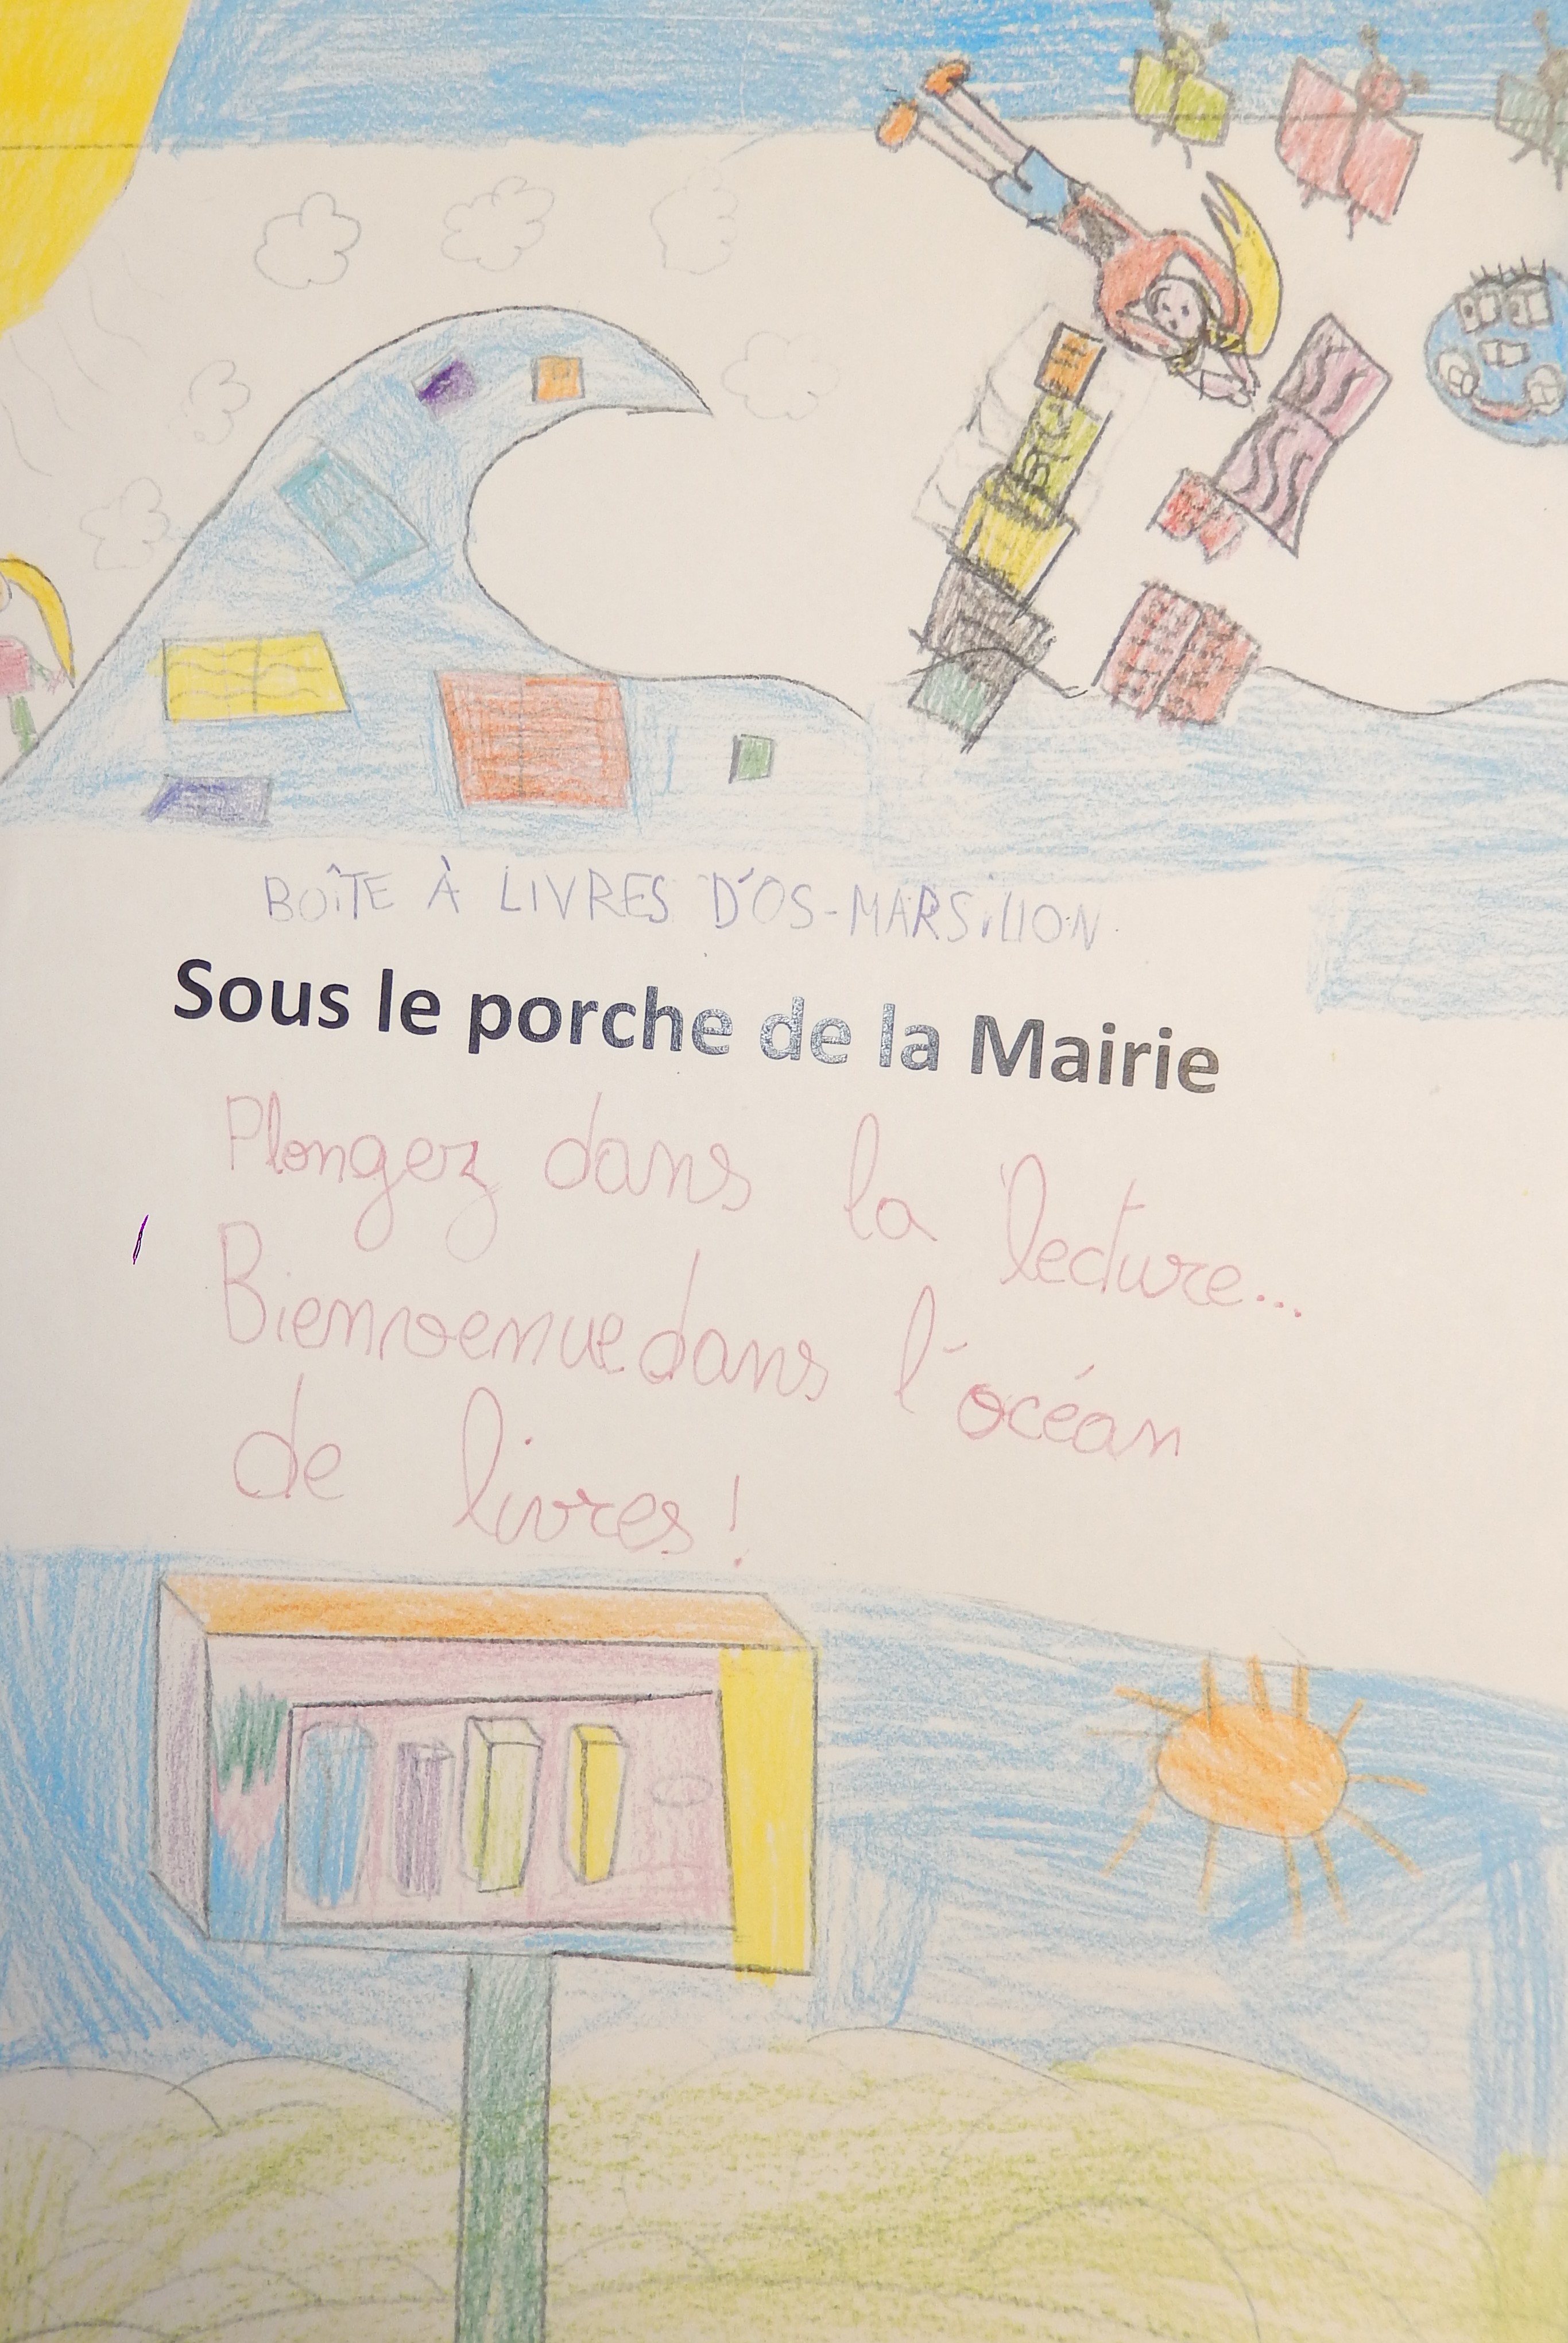 BOÎTE À LIVRES D'OS-MARSILLON
Sous le porche de la Mairie
Plongez dans la lecture...
Bienvenue dans l'océan
de livres !